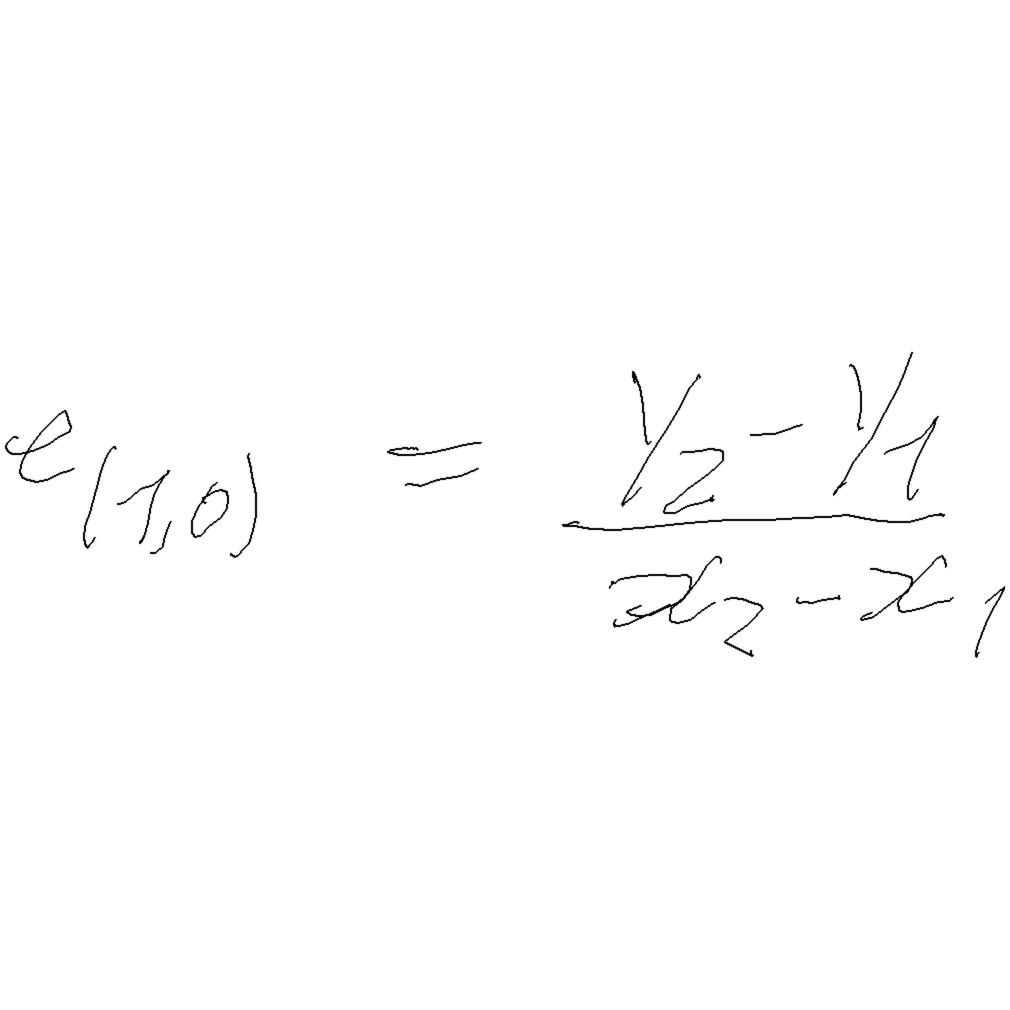 e_{(1,0)} = \frac{y_2 - y_1}{x_2 - x_1}